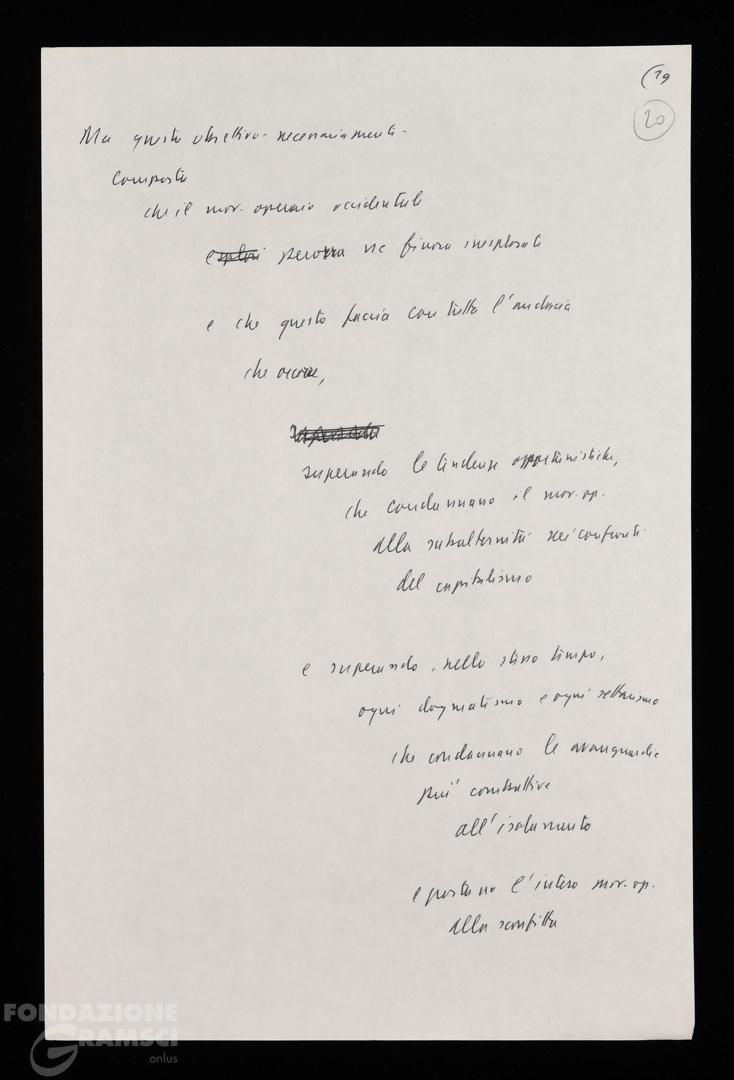 (19
20
Ma questo obiettivo - necessariamente -
comporta
che il mov. operaio occidentale
esplori percorra vie finora inesplorate
e che questo faccia con tutta l'audacia
che occorre,
superando le tendenze opportunistiche,
che condannano il mov. op.
alla subalternità nei confronti
del capitalismo
e superando, nello stesso tempo,
ogni dogmatismo e ogni settarismo
che condannano le avanguardie
più combattive
all'isolamento
e portano l'intero mov. op.
alla sconfitta
FONDAZIONE
GRAMSCI
onlus